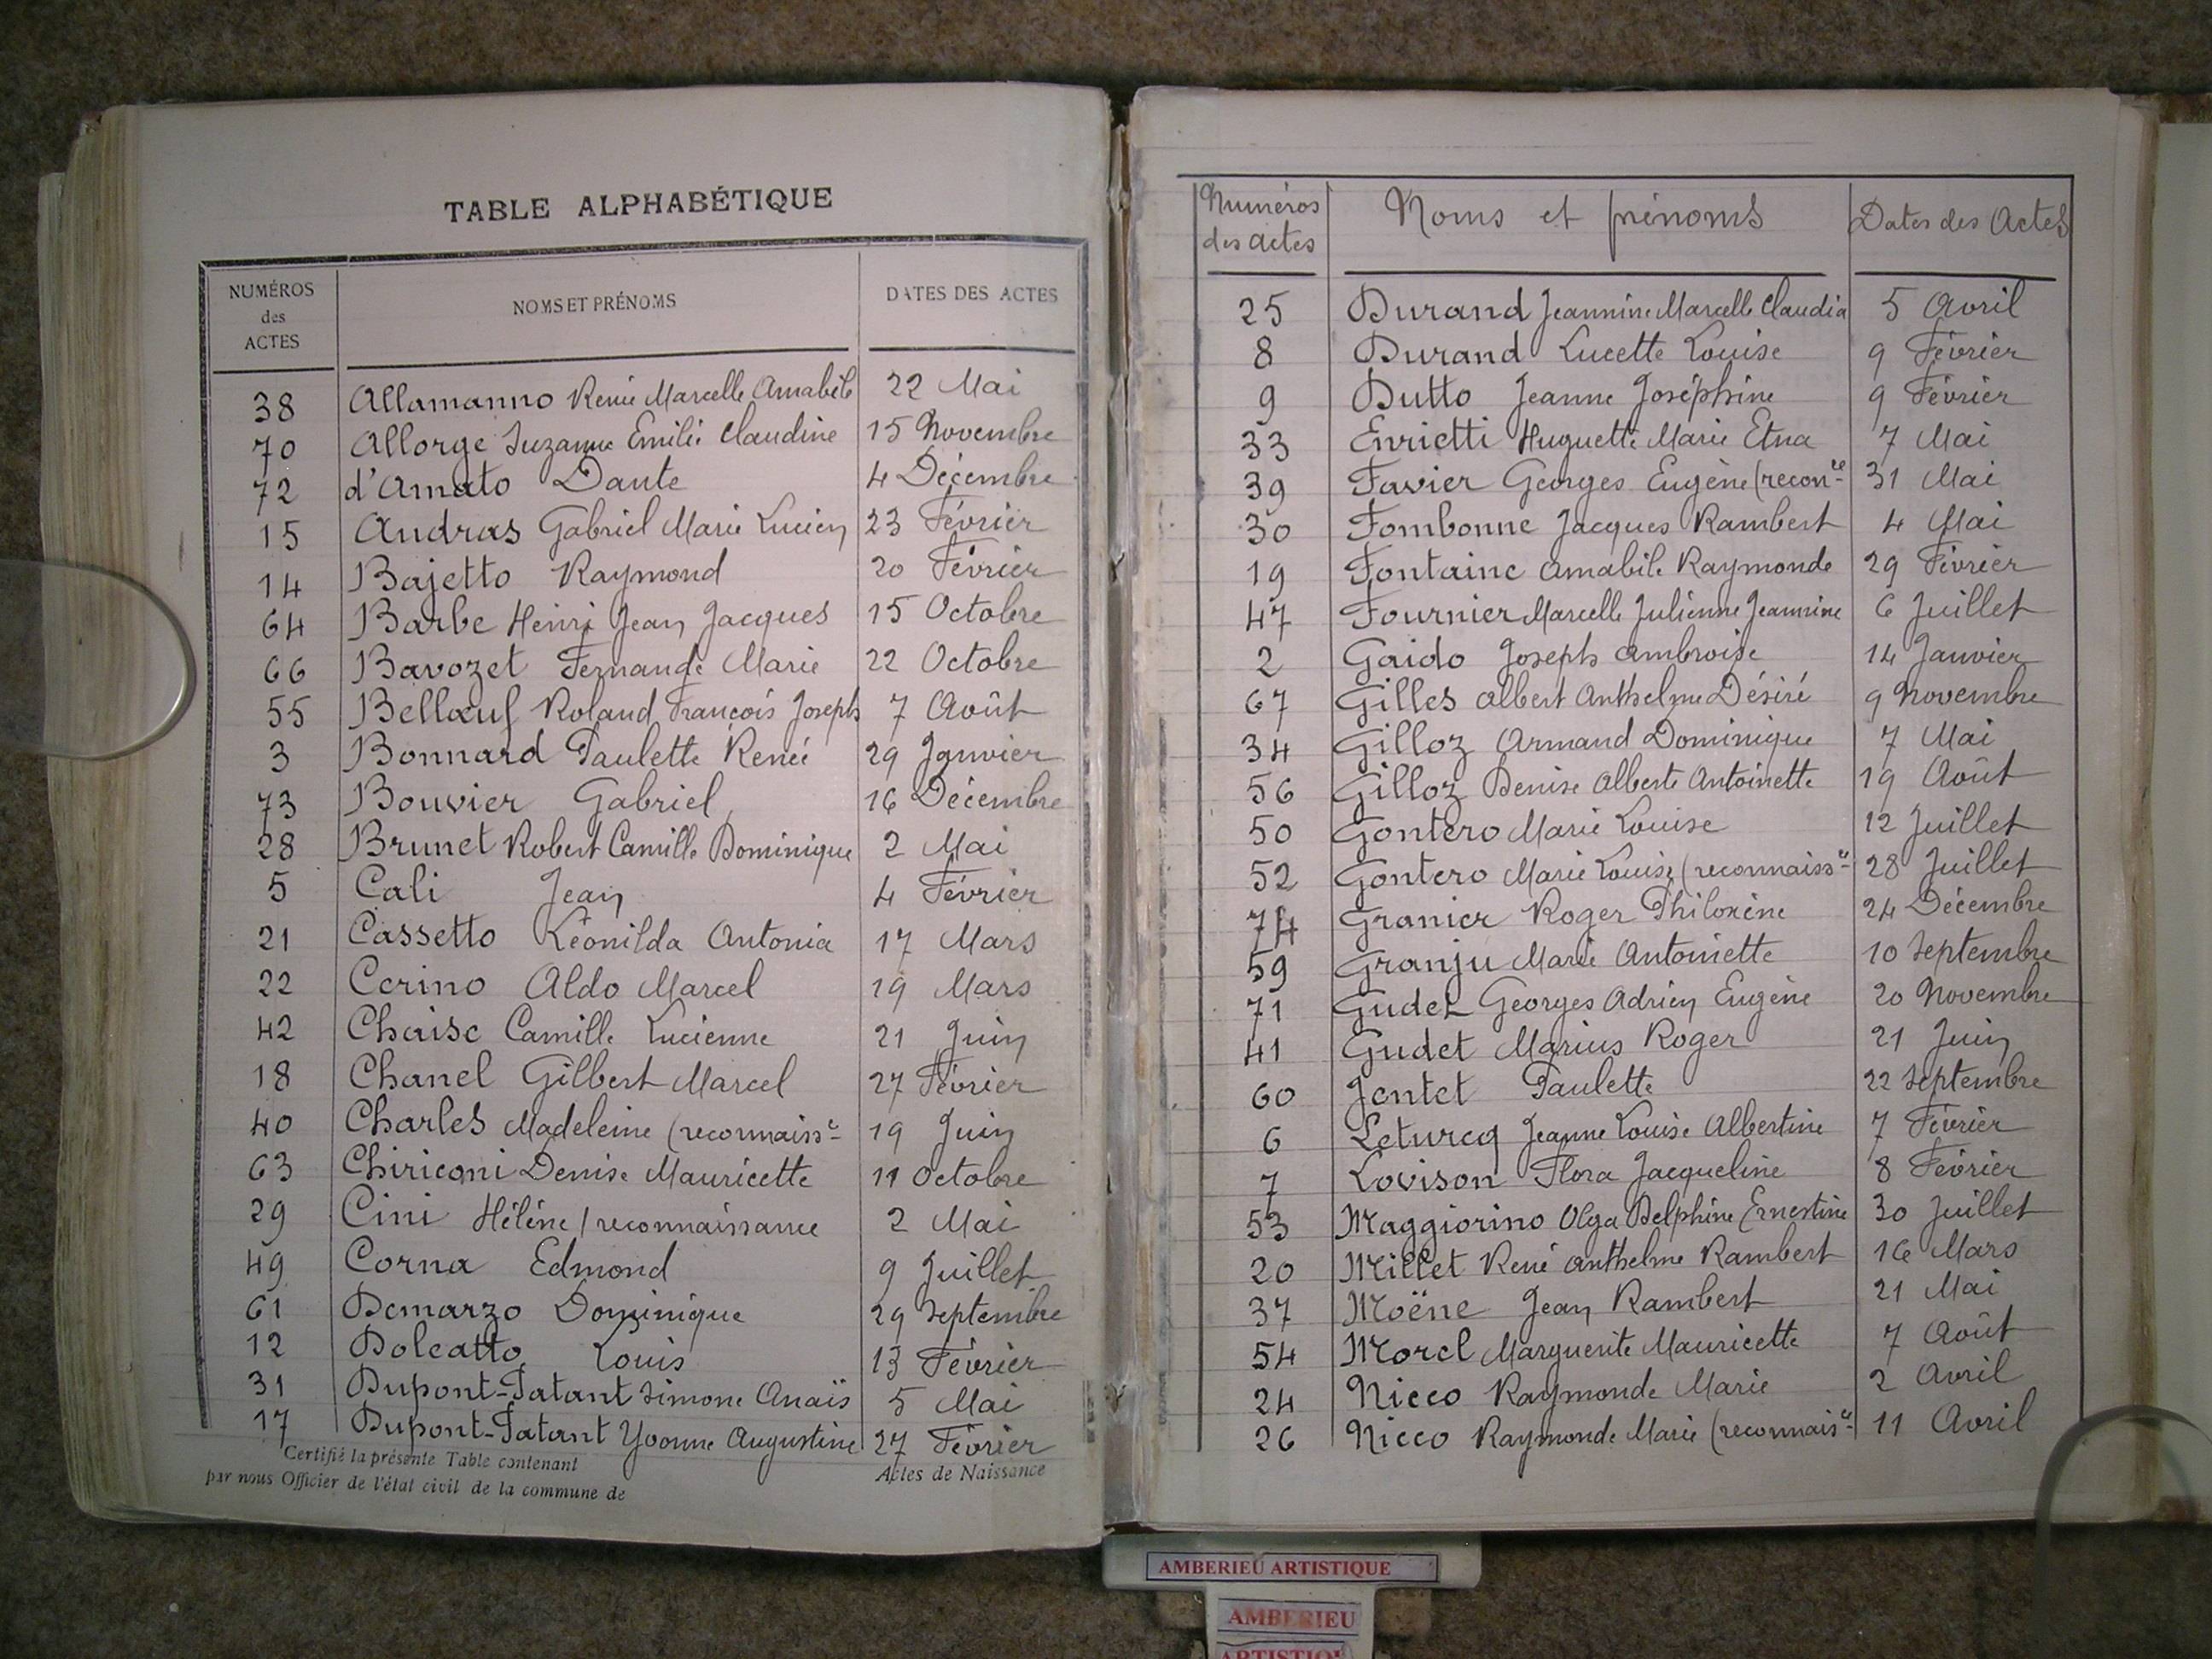 TABLE ALPHABÉTIQUE
NUMÉROS des ACTES NOMS ET PRÉNOMS DATES DES ACTES
38 Allamanno Renée Marcelle Amabile 22 Mai
70 Allorge Suzanne Emilie Claudine 15 Novembre
72 d'Amato Dante 4 Décembre
15 Andras Gabriel Marie Lucien 23 Février
14 Bajetto Raymond 20 Février
64 Barbe Henri Jean Jacques 15 Octobre
66 Bavozet Fernande Marie 22 Octobre
55 Bellœuf Roland François Joseph 7 Août
3 Bonnard Paulette Renée 29 Janvier
73 Bouvier Gabriel 16 Décembre
28 Brunet Robert Camille Dominique 2 Mai
5 Cali Jean 4 Février
21 Cassetto Léonilda Antonia 17 Mars
22 Cerino Aldo Marcel 19 Mars
42 Chaise Camille Lucienne 21 Juin
18 Chanel Gilbert Marcel 27 Février
40 Charles Madeleine (reconnaissce 19 Juin
63 Chiriconi Denise Mauricette 11 Octobre
29 Cini Hélène (reconnaissance 2 Mai
49 Corna Edmond 9 Juillet
61 Demarzo Dominique 29 Septembre
12 Dolcatto Louis 13 Février
31 Dupont-Fatant Simone Anaïs 5 Mai
17 Dupont-Fatant Yvonne Augustine 27 Février
Certifié la présente Table contenant Actes de Naissance
par nous Officier de l'état civil de la commune de
Numéros des actes Noms et prénoms Dates des Actes
25 Durand Jeannine Marcelle Claudia 5 Avril
8 Durand Lucette Louise 9 Février
9 Dutto Jeanne Joséphine 9 Février
33 Enrietti Huguette Marie Etna 7 Mai
39 Favier Georges Eugène (reconce 31 Mai
30 Fombonne Jacques Rambert 4 Mai
19 Fontaine Amabile Raymonde 29 Février
47 Fournier Marcelle Julienne Jeannine 6 Juillet
2 Gaido Joseph Ambroise 14 Janvier
67 Gilles Albert Anthelme Désiré 9 Novembre
34 Gilloz Armand Dominique 7 Mai
56 Gilloz Denise Alberte Antoinette 19 Août
50 Gontero Marie Louise 12 Juillet
52 Gontero Marie Louise (reconnaissce 28 Juillet
74 Granier Roger Philoxène 24 Décembre
59 Granju Marie Antoinette 10 Septembre
71 Gudet Georges Adrien Eugène 20 Novembre
41 Gudet Marius Roger 21 Juin
60 Jentet Paulette 22 Septembre
6 Leturcq Jeanne Louise Albertine 7 Février
7 Lovison Flora Jacqueline 8 Février
53 Maggiorino Olga Delphine Ernestine 30 Juillet
20 Millet René Anthelme Rambert 16 Mars
37 Moëne Jean Rambert 21 Mai
54 Morel Marguerite Mauricette 7 Août
24 Nicco Raymonde Marie 2 Avril
26 Nicco Raymonde Marie (reconnaisce 11 Avril
AMBERIEU ARTISTIQUE
AMBERIEU
ARTISTIQUE